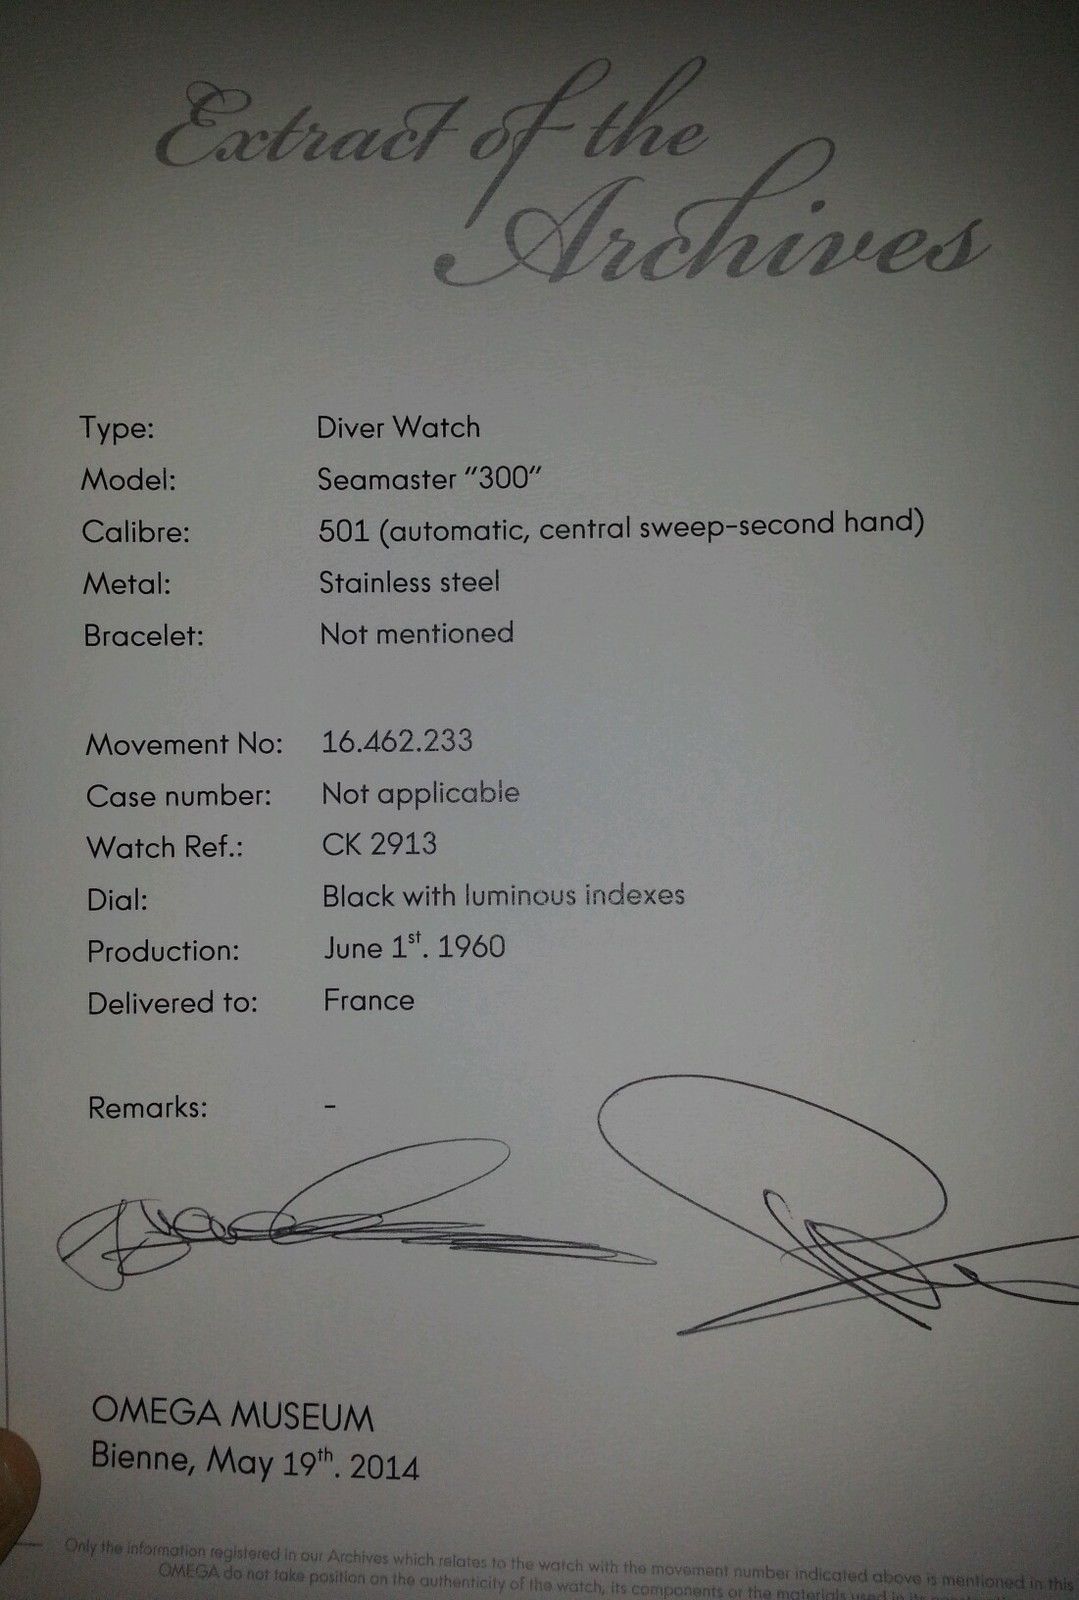 Extract of the
Archives
Type: Diver Watch
Model: Seamaster "300"
Calibre: 501 (automatic, central sweep-second hand)
Metal: Stainless steel
Bracelet: Not mentioned
Movement No: 16.462.233
Case number: Not applicable
Watch Ref.: CK 2913
Dial: Black with luminous indexes
Production: June 1st. 1960
Delivered to: France
Remarks: -
OMEGA MUSEUM
Bienne, May 19th. 2014
Only the information registered in our Archives which relates to the watch with the movement number indicated above is mentioned in this
OMEGA do not take position on the authenticity of the watch, its components or the materials used in its